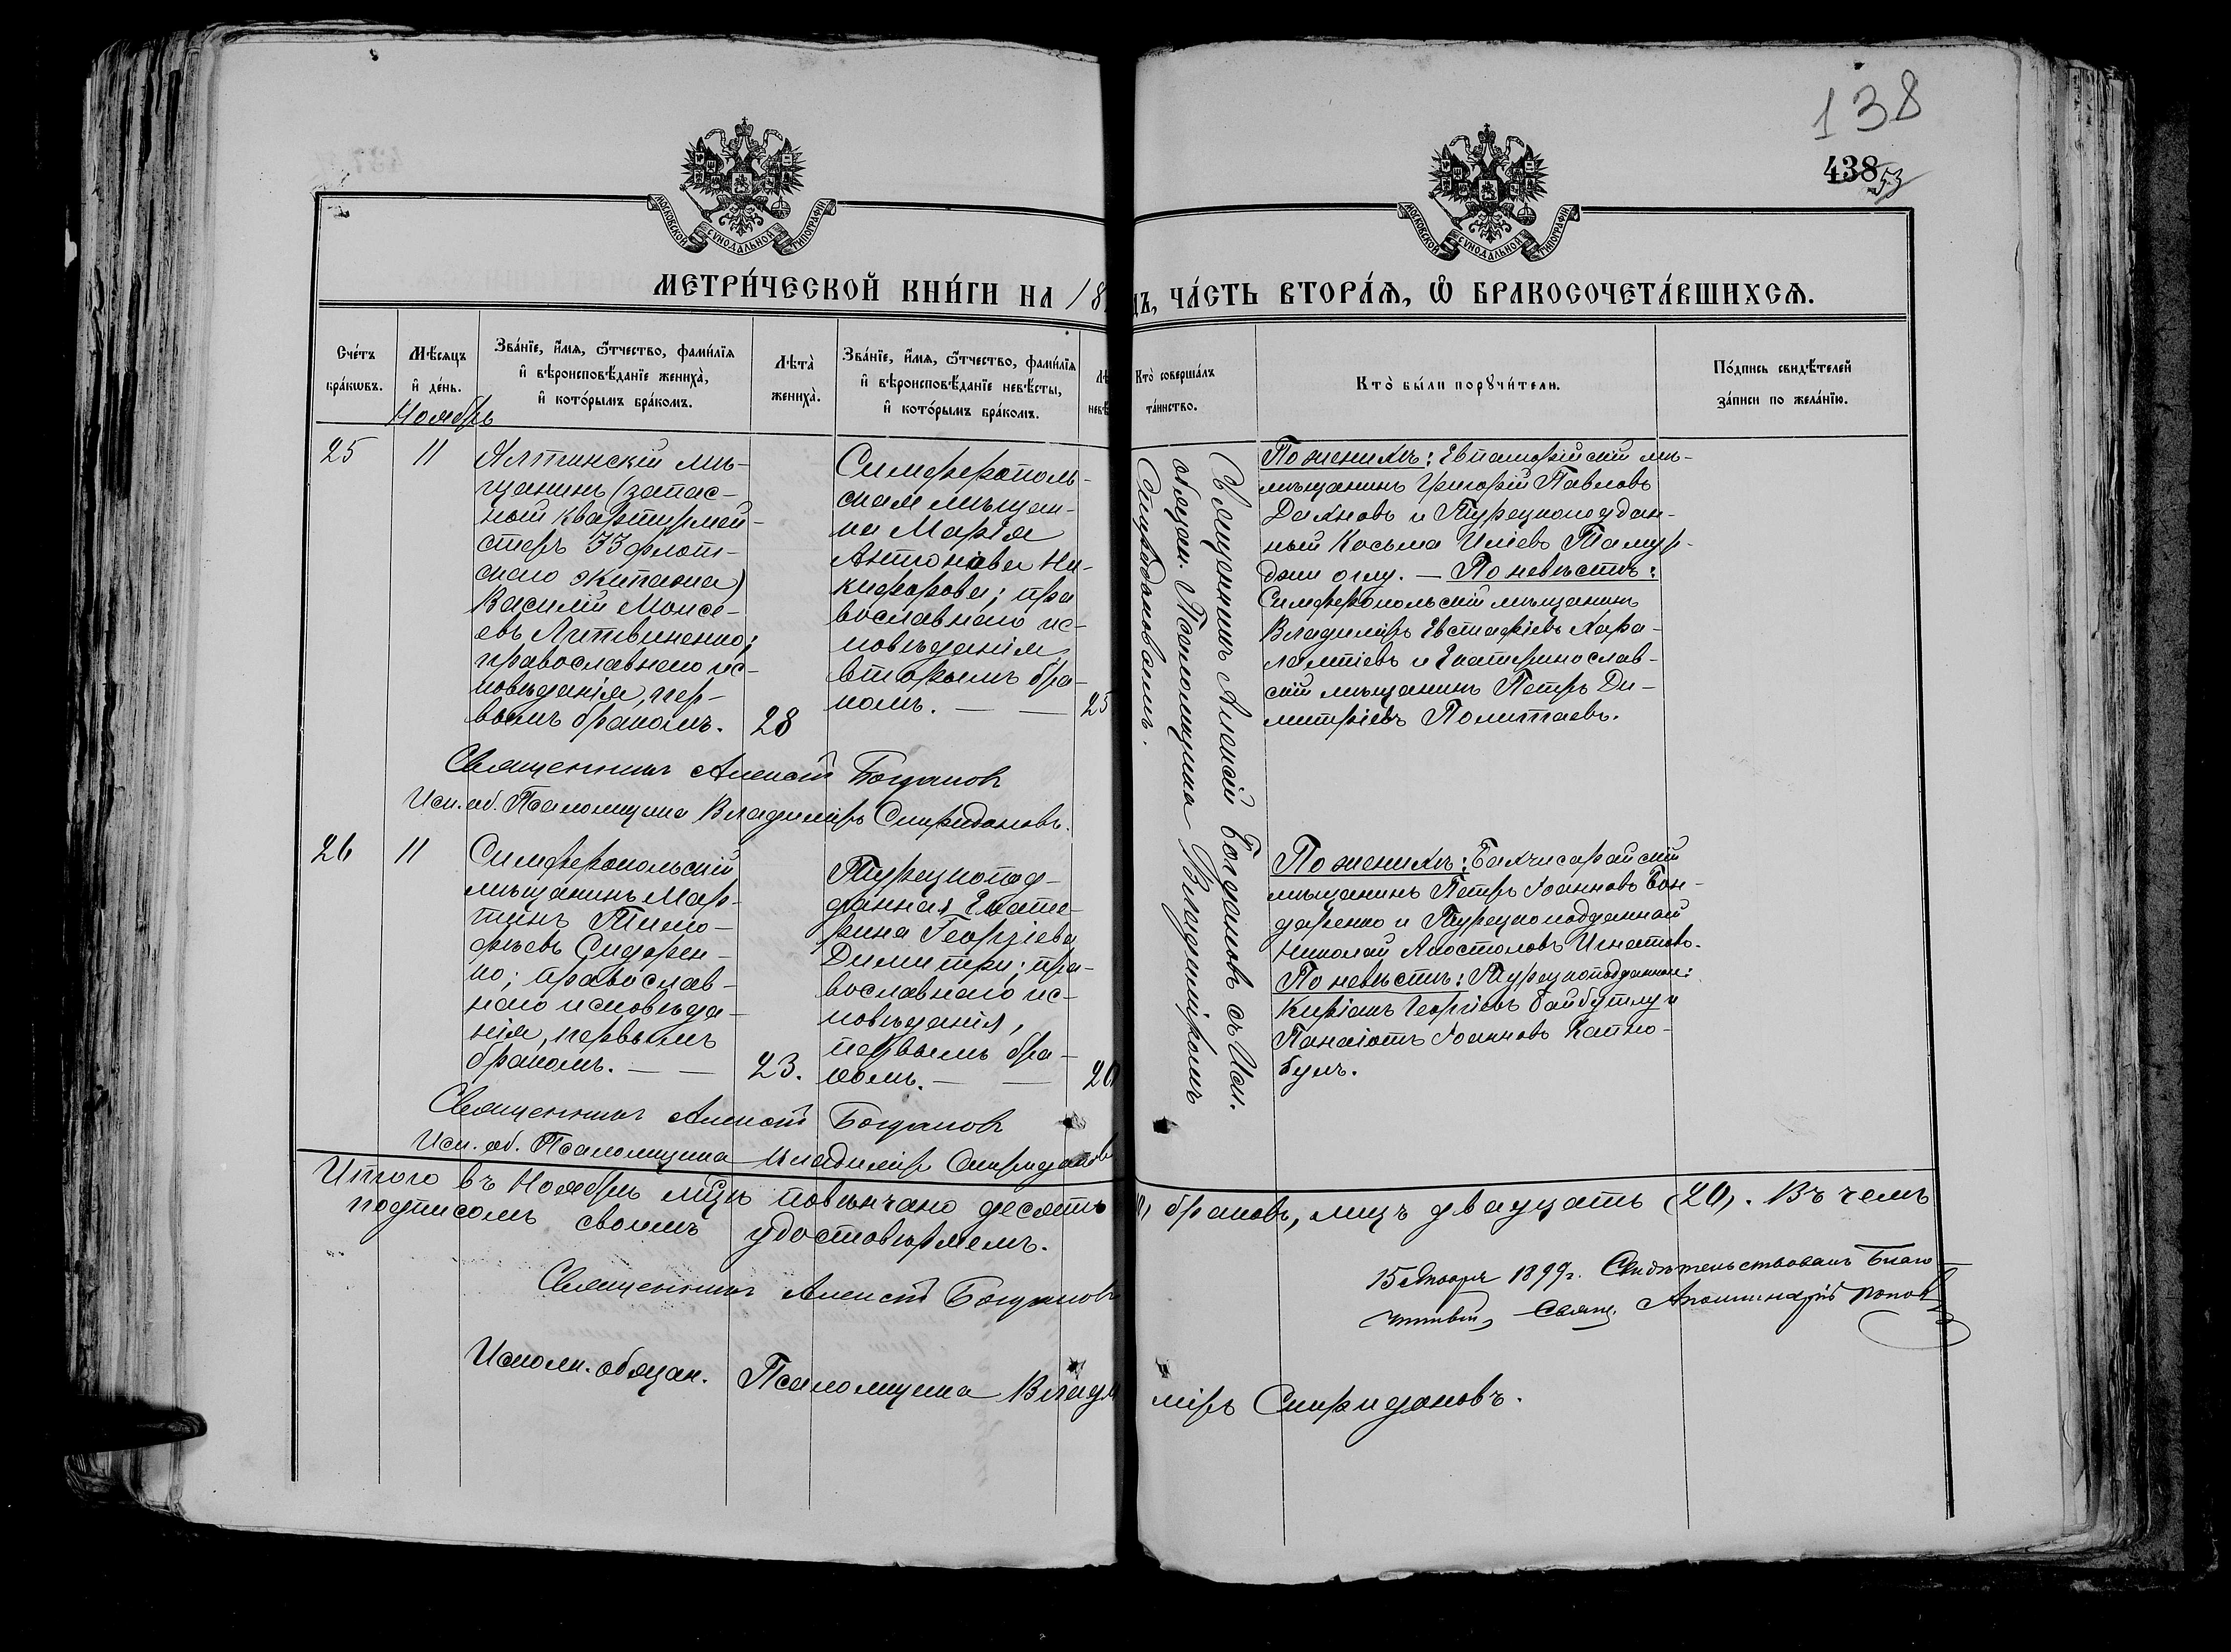 138
438
53
МОСКОВСКОЙ СѴНОДАЛЬНОЙ ТИПОГРАФІИ
МОСКОВСКОЙ СѴНОДАЛЬНОЙ ТИПОГРАФІИ
МЕТРИ́ЧЕСКОЙ КНИ́ГИ НА 18
ЧА́СТЬ ВТОРА́Ѧ, Ѽ БРАКОСОЧЕТА́ВШИХСѦ.
Сче́тъ
бра́кѡвъ.
Мѣ́сяцъ
и҆ де́нь.
Ноябрь
Зва́нїе, и҆́мѧ, ѻ҆́тчество, фами́лїѧ
и҆ вѣроисповѣ́данїе жениха̀,
и҆ кото́рымъ бра́комъ.
Лѣта̀
жениха̀.
Зва́нїе, и҆́мѧ, ѻ҆́тчество, фами́лїѧ
и҆ вѣроисповѣ́данїе невѣ́сты,
и҆ кото́рымъ бра́комъ.
Кто̀ соверша́лъ
та́инство.
Кто̀ бы́ли порꙋчи́тели.
По́дпись свидѣ́телей
за́писи по жела́нїю.
25
11
Ялтинскій мѣ-
щанинъ (запас-
ный квартирмей-
стеръ 33 флот-
скаго экипажа)
Василій Моисе-
евъ Литвиненко;
православнаго ис-
повѣданія, пер-
вымъ бракомъ.
28
Симферополь-
ская мѣщан-
ка Марія
Антонова Ни-
кифорова; пра
вославнаго ис-
повѣданія
вторымъ бра-
комъ. — —
25
Священникъ Алексій Богдановъ съ Исп.
обязан. Псаломщика Владиміромъ
Спиридоновымъ.
По женихѣ: Евпаторійскій мѣ-
мѣщанинъ Григорій Павловъ
Дахновъ и Турецкоподдан-
ный Косьма Иліевъ
оглу. — По невѣстѣ:
Симферопольскій мѣщанинъ
Владиміръ Евстафіевъ Хара-
лампіевъ и Екатеринослав-
скій мѣщанинъ Петръ Ди-
митріевъ Политаевъ.
Священникъ Алексій Богдановъ
Исп. об. Псаломщика Владиміръ Спиридоновъ.
26
11
Симферопольскій
мѣщанинъ Мар-
тинъ Тимо-
фѣевъ Сидорен-
ко; православ-
наго исповѣда-
нія, первымъ
бракомъ. — —
23.
Турецкопод-
данная Екате-
рина Георгіева
Димитри; пра-
вославнаго ис-
повѣданія,
первымъ бра-
комъ. — —
20
По женихѣ: Бахчисарайскій
мѣщанинъ Петръ Іоанновъ Бон-
даренко и Турецкоподданный
Николай Апостоловъ Игнатовъ.
По невѣстѣ: Турецкоподданные:
Киріакъ Георгіевъ Байбутлу и
Панаіотъ Іоанновъ
Священникъ Алексій Богдановъ
Исп. об. Псаломщика Владиміръ Спиридоновъ
Итого въ Ноябрѣ м͠цѣ повѣнчано десять
браковъ, лицъ двадцать (20). Въ чемъ
подписомъ своимъ удостовѣряемъ.
Священникъ Алексій Богдановъ
15 Января 1899г. Свидѣтельствовалъ Благо
чинный, Свящ. Аполлинарій Поповъ
Исполн. обязан. Псаломщика Владиміръ Спиридоновъ.